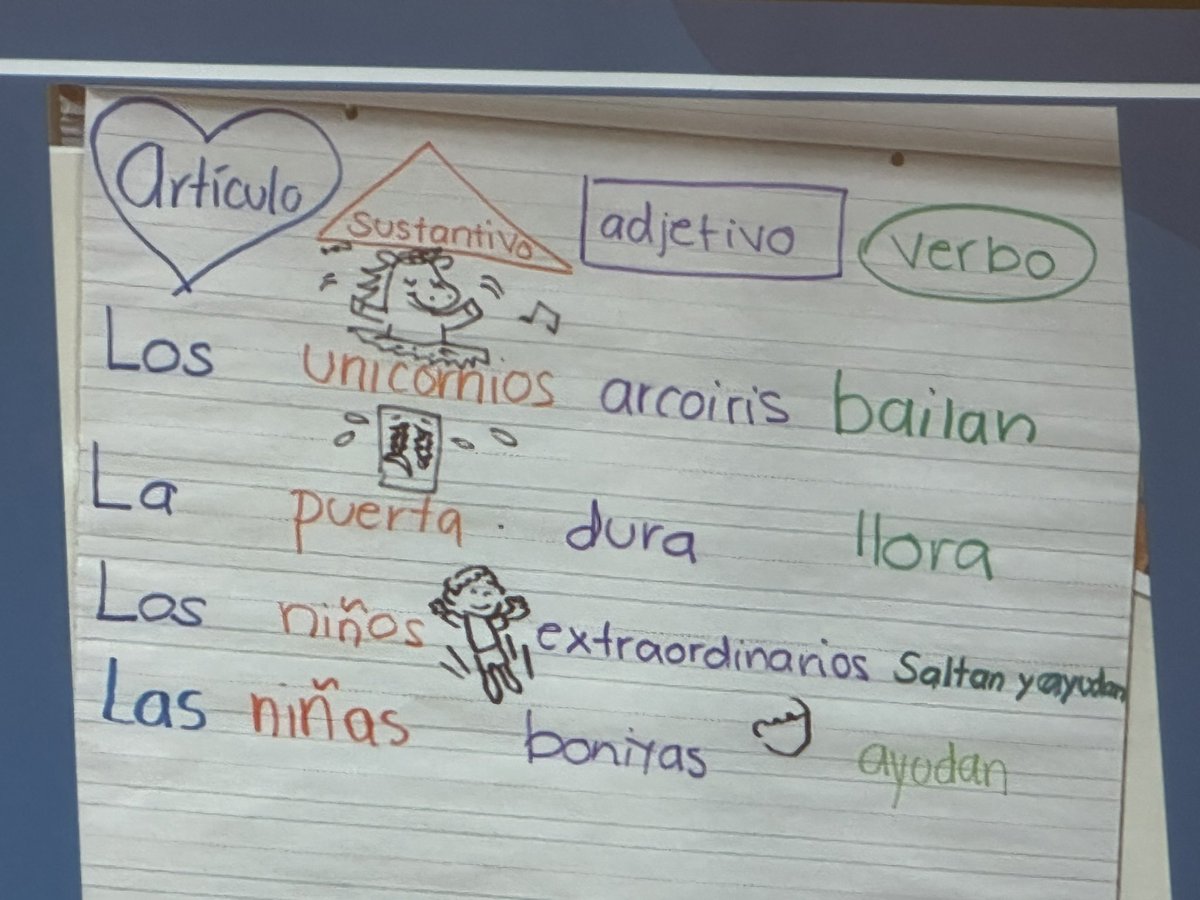 Artículo Sustantivo adjetivo verbo
Los unicornios arcoiris bailan
La puerta dura llora
Los niños extraordinarios Saltan y ayudan
Las niñas bonitas ayudan